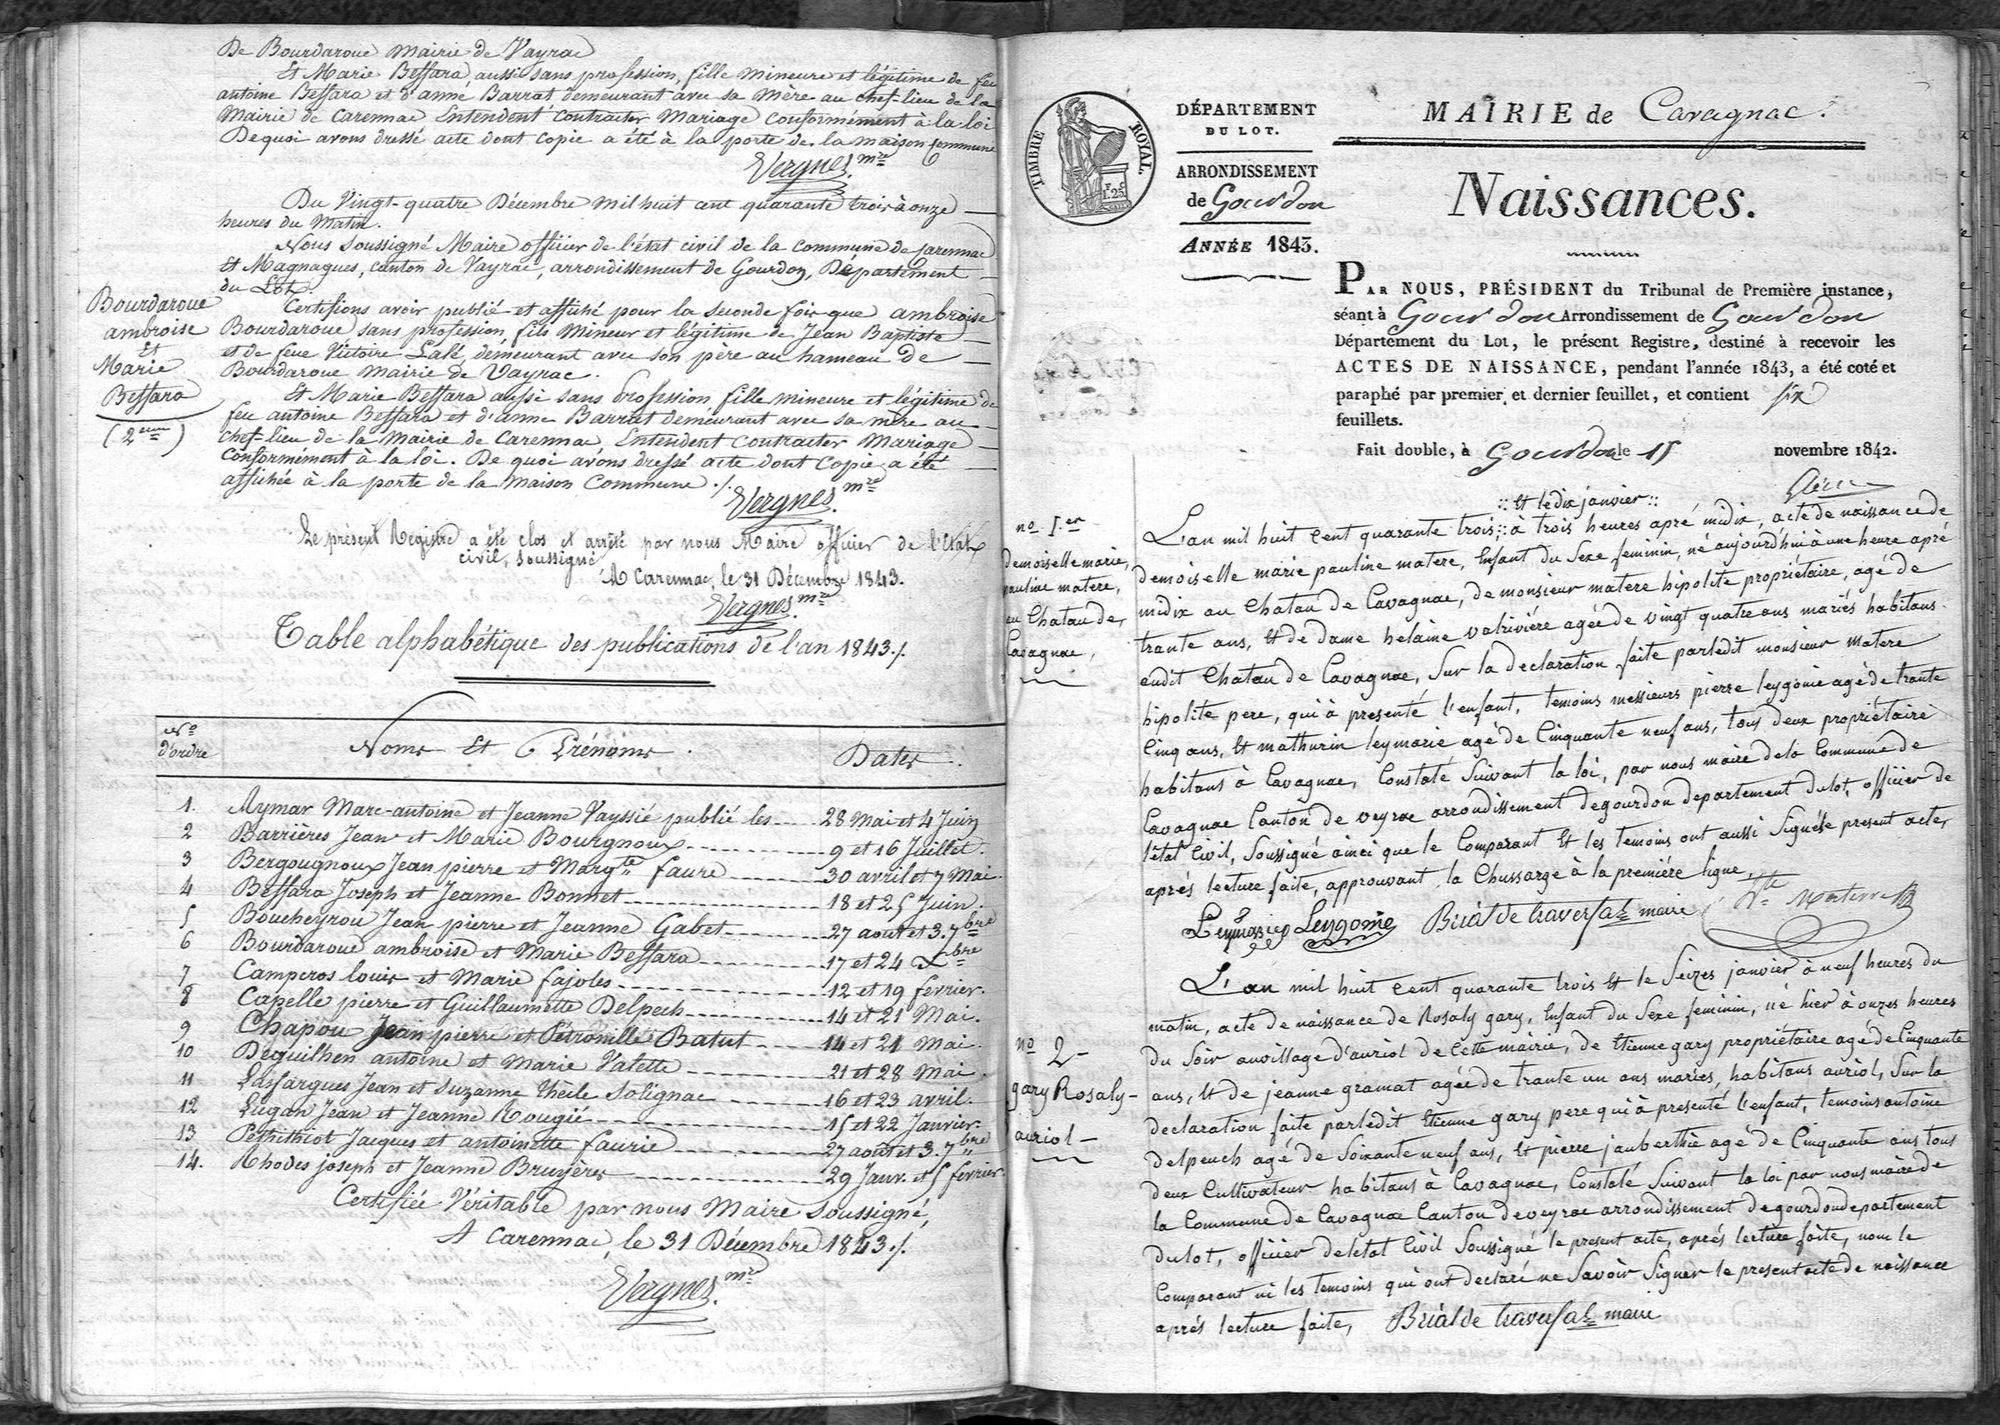 De Bourdaroue Mairie de Vayrac
Et Marie Bessara aussi sans profession, fille mineure et légitime de feu
antoine Bessara et d'anne Barrat demeurant avec sa Mère au chef-lieu de la
Mairie de Carennac Entendent contracter Mariage Conformément à la loi
De quoi avons dressé acte dont copie a été à la porte de la maison commune
Vergnes mre
Du Vingt-quatre Décembre Mil huit cent quarante trois à onze
heures du Matin.
Nous soussigné Maire officier de l'état civil de la commune de Carennac
Et Magnagues, canton de Vayrac, arrondissement de Gourdon, Département
du Lot.
Certifions avoir publié et affiché pour la seconde fois que ambroise
Bourdaroue sans profession, fils Mineur et légitime de Jean Baptiste
et de feue Victoire Lafé, demeurant avec son père au hameau de
Bourdaroue Mairie de Vayrac.
Et Marie Bessara aussi sans Profession fille mineure et légitime de
feu antoine Bessara et d'anne Barrat demeurant avec sa mère au
chef-lieu de la Mairie de Carennac, Entendent contracter Mariage
conformément à la loi. De quoi avons dressé acte dont copie a été
affichée à la porte de la Maison Commune ./.
Vergnes mre
Bourdaroue
ambroise
Et
Marie
Bessara
(2eme)
Le présent Registre a été clos et arrêté par nous Maire officier de l'Etat
civil, soussigné
A Carennac, le 31 Décembre 1843.
Vergnes mre
Table alphabétique des publications de l'an 1843./.
Nos d'ordre Noms Et Prénoms. Dates.
1. Aymar Marc-antoine et Jeanne Vayssié publié les 28 Mai et 4 Juin
2 Barrières Jean et Marie Bourgnoux 9 et 16 Juillet.
3 Bergougnoux Jean pierre et Margte faure 30 avril et 7 Mai.
4 Bessara Joseph et Jeanne Bonnet 18 et 25 Juin.
5 Boucheyrou Jean pierre et Jeanne Gabet 27 août et 3. 7bre
6 Bourdaroue ambroise et Marie Bessara 17 et 24 Xbre
7 Camperos louis et Marie fajoles 12 et 19 février.
8 Capelle pierre et Guillaumette Delpech 14 et 21 Mai.
9 Chapou Jean pierre et Pétronille Batut 14 et 21 Mai.
10 Deguilhen antoine et Marie Valette 21 et 28 Mai.
11 Lasfargues Jean et Suzanne Thècle Solignac 16 et 23 avril.
12 Lugan Jean et Jeanne Rougié 15 et 22 Janvier.
13 Pethithiot Jacques et antoinette faurie 27 août et 3. 7bre
14. Rhodes joseph et Jeanne Bruyères 29 Janv. et 5 février.
Certifiée Véritable par nous Maire Soussigné,
A Carennac, le 31 Décembre 1843./.
Vergnes mre
TIMBRE ROYAL.
DÉPARTEMENT
DU LOT.
ARRONDISSEMENT
de Gourdon
ANNÉE 1843.
MAIRIE de Cavagnac.
Naissances.
PAR NOUS, PRÉSIDENT du Tribunal de Première instance,
séant à Gourdon Arrondissement de Gourdon
Département du Lot, le présent Registre, destiné à recevoir les
ACTES DE NAISSANCE, pendant l'année 1843, a été coté et
paraphé par premier et dernier feuillet, et contient six
feuillets.
Fait double, à Gourdon le 15 novembre 1842.
no 1.er
demoiselle marie,
pauline matere,
au Chatau de,
Cavagnac,
:: Et le dix janvier ::
L'an mil huit Cent quarante trois :: à trois heures apré midix, acte de naissance de
demoiselle marie pauline matere, Enfant du Sexe feminin, né aujourd'hui à une heure apré
midix au Chatau de Cavagnac, de monsieur matere hipolite propriétaire, agé de
trante ans, Et de dame helaine valrivière agée de vingt quatre ans mariés habitans
audit Chatau de Cavagnac, Sur la declaration faite par ledit monsieur matere
hipolite pere, qui à presenté l'enfant, temoins messieurs pierre leygonie agé de trante
Cinq ans, Et mathurin leymarie agé de Cinquante neuf ans, tous deux propriétaire
habitans à Cavagnac, Constaté Suivant la loi, par nous maire de la Commune de
Cavagnac Canton de veyrac arrondissement de gourdon departement du lot, officier de
l'état Civil, Soussigné ainci que le Comparant Et les temoins ont aussi Signés le present acte,
aprés lecture faite, approuvant la Chussarge à la premiére ligne,
Leymarie Leygonie Briál de traversat maire hte Materre
no 2
gary Rosaly
auriol
L'an mil huit Cent quarante trois Et le Seizes janvier à neuf heures du
matin, acte de naissance de Rosaly gary, Enfant du Sexe feminin, né hier à onzes heures
du Soir au village d'auriol de Cette mairie, de Etienne gary propriétaire agé de Cinquante
ans, Et de jeanne gramat agée de trante un ans mariés, habitans auriol, Sur la
declaration faite par ledit Etienne gary pere qui à presenté l'enfant, temoins antoine
delpeuch agé de Soixante neuf ans, Et pierre jauberthie agé de Cinquante ans tous
deux Cultivateur habitans à Cavagnac, Constaté Suivant la loi par nous maire de
la Commune de Cavagnac Canton de veyrac arrondissement de gourdon departement
du lot, officier de letat Civil Soussigné le present acte, aprés lecture faite, nom le
Comparant ni les temoins qui ont declaré ne Savoir Signer le present acte de naissance
aprés lecture faite, Briál de traversat maire